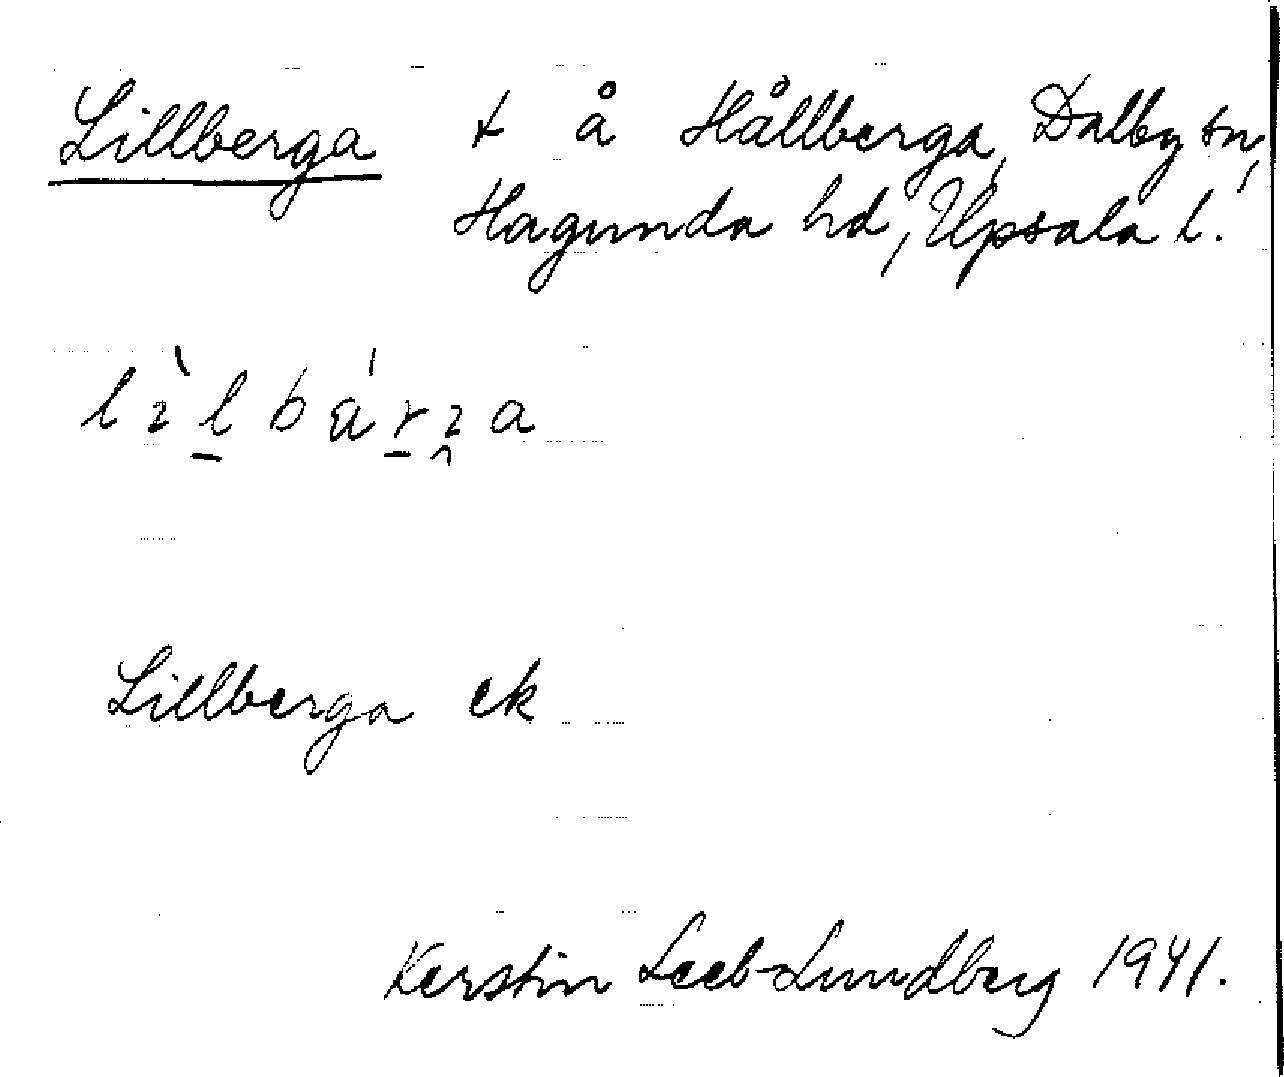 Lillberga t å Hållberga, Dalby sn,
Hagunda hd, Upsala l.
Lillberga ek
Kerstin Leeb-Lundberg 1941.